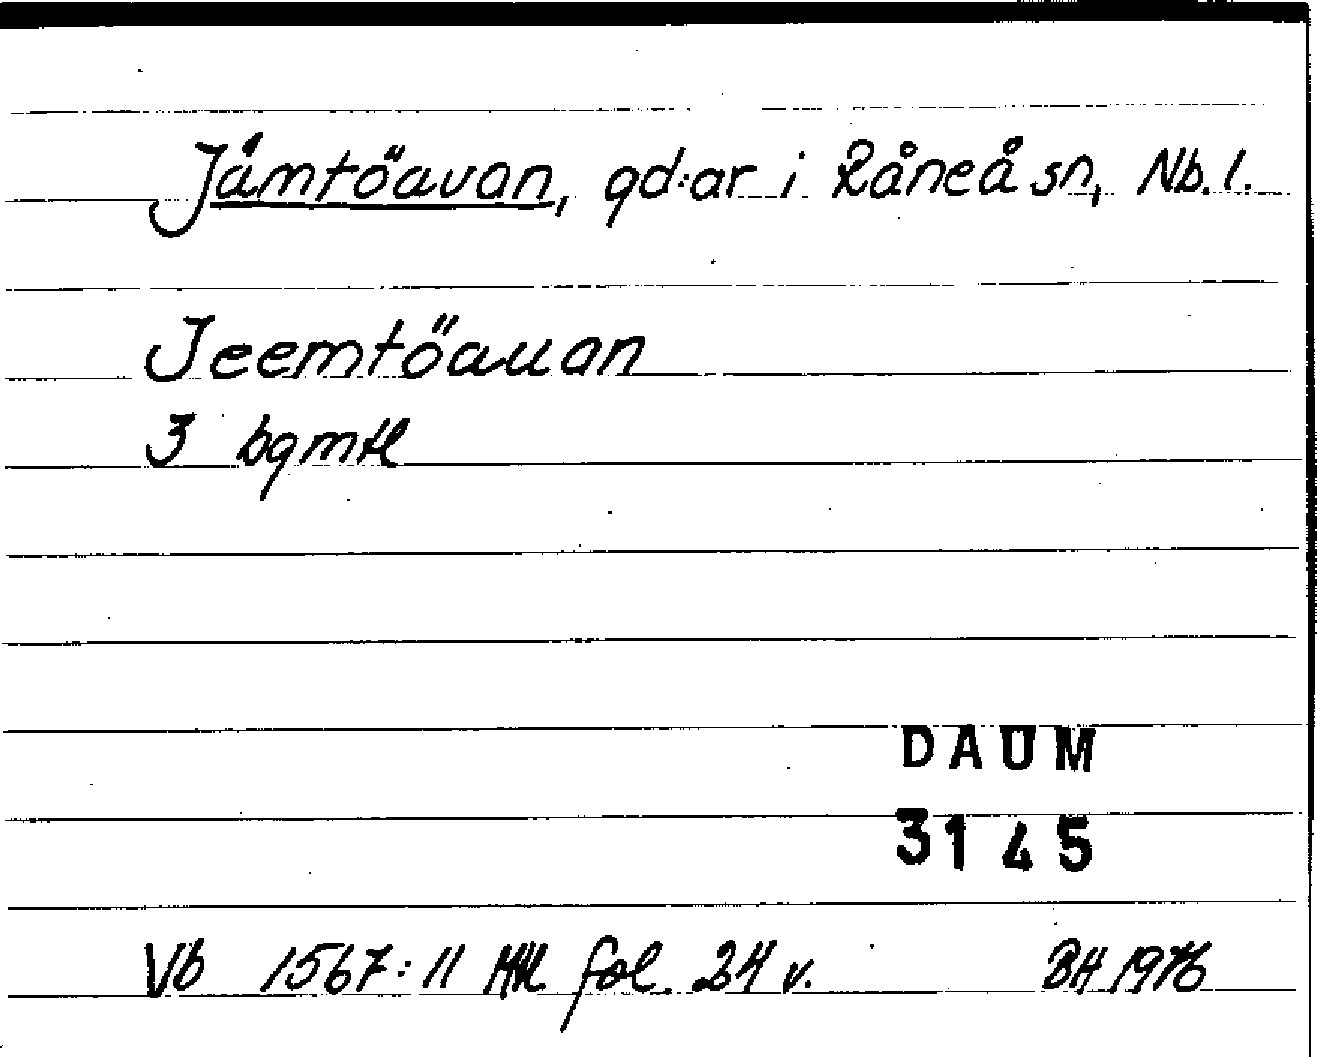 Jämtöavan, gd:ar i Råneå sn, Nb. l.
Jeemtöauan
3 bgmtl
DAUM
3145
Vb 1567:11 Mtl fol. 24 v. BH 1976